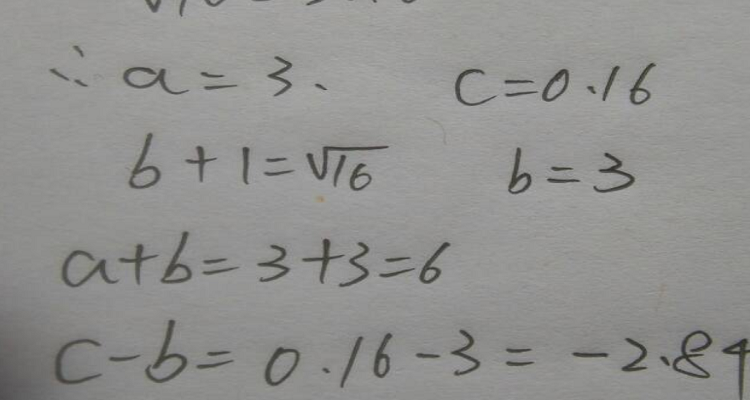 ∵ a = 3. c = 0.16
b + 1 = √16 b = 3
a + b = 3 + 3 = 6
c - b = 0.16 - 3 = -2.84